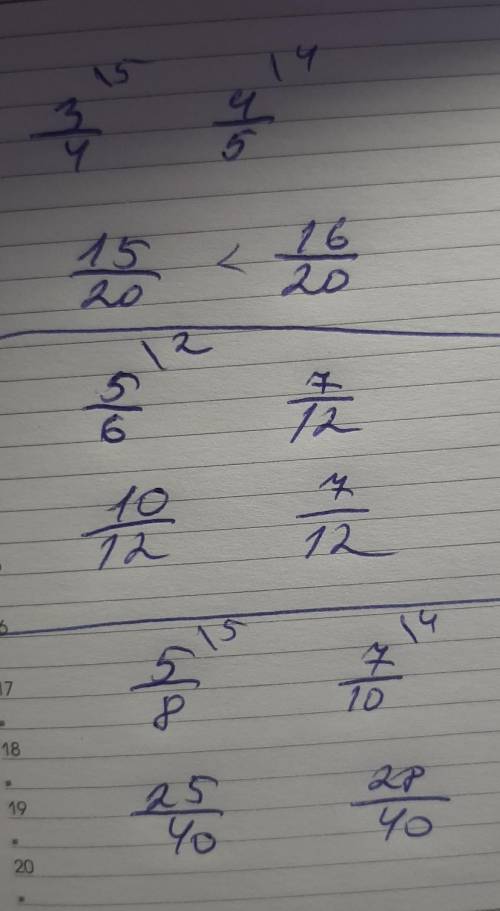 3/4 \5 4/5 \4
15/20 < 16/20
5/6 \2 7/12
10/12 7/12
6
5/8 \5 7/10 \4
17
18
25/40 28/40
19
20